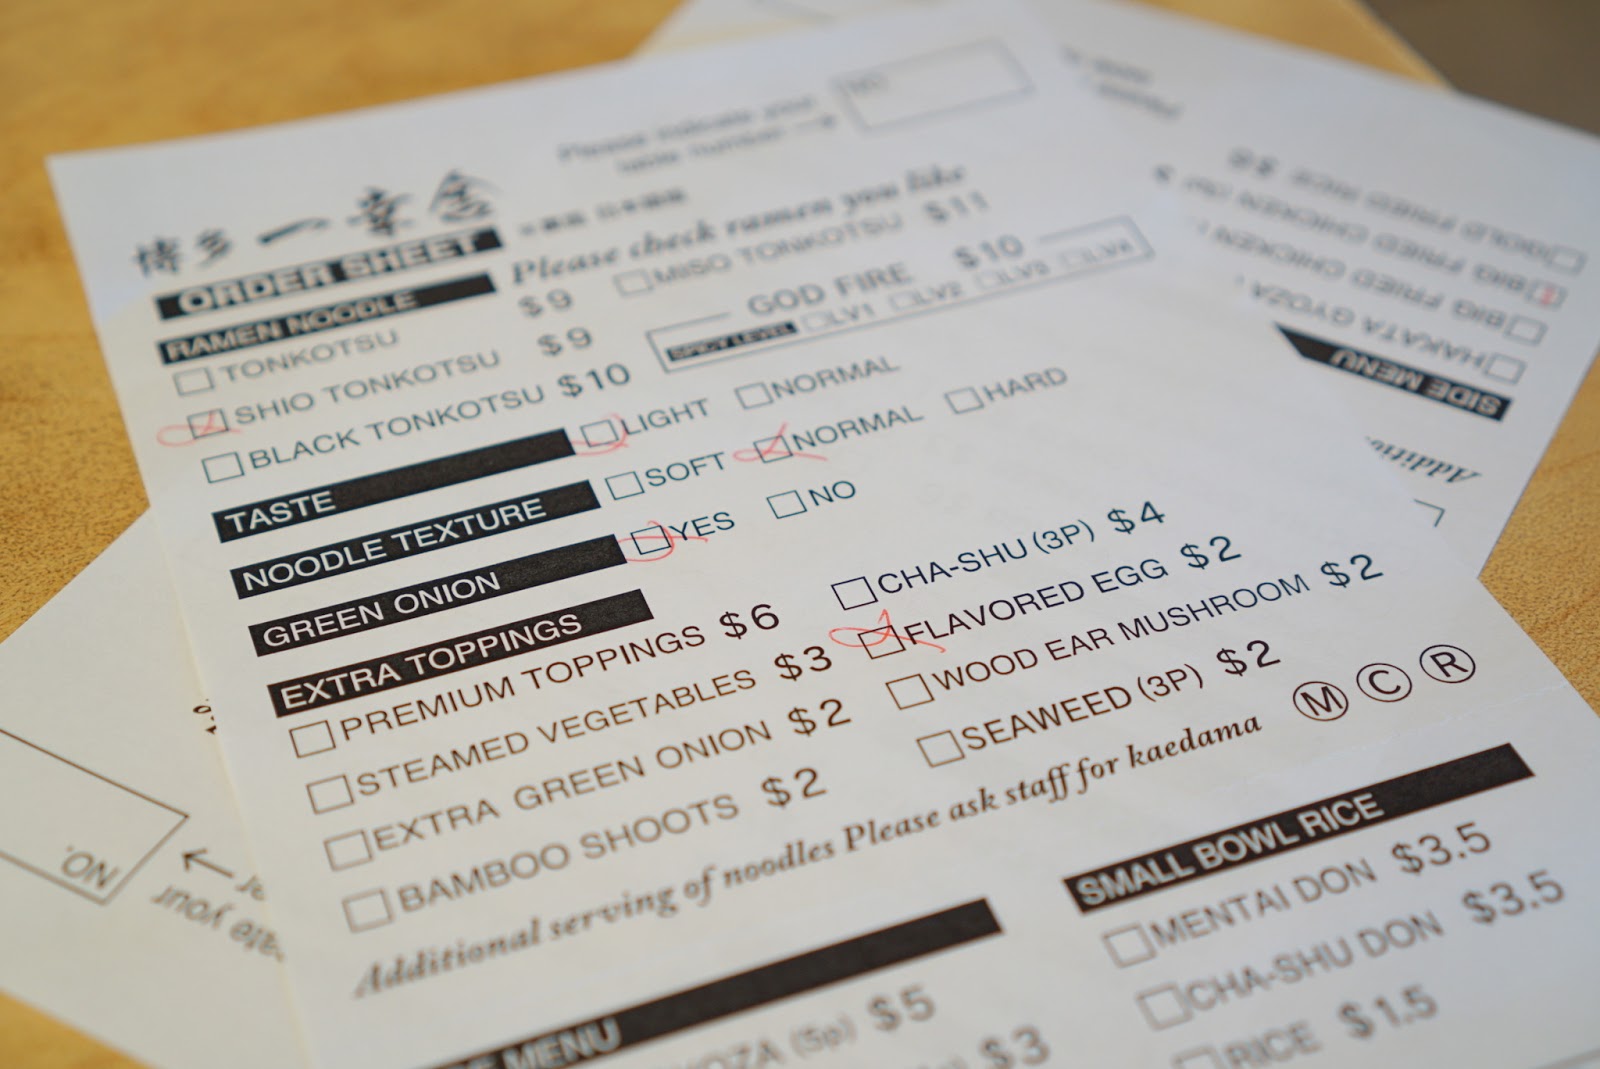 Please indicate your
table number
NO.
博多一幸舎
ORDER SHEET
Please check ramen you like
RAMEN NOODLE
TONKOTSU $9
SHIO TONKOTSU $9
BLACK TONKOTSU $10
MISO TONKOTSU $11
GOD FIRE $10
SPICY LEVEL LV1 LV2 LV3 LV4
TASTE LIGHT NORMAL
NOODLE TEXTURE SOFT NORMAL HARD
GREEN ONION YES NO
EXTRA TOPPINGS
PREMIUM TOPPINGS $6
STEAMED VEGETABLES $3
EXTRA GREEN ONION $2
BAMBOO SHOOTS $2
CHA-SHU (3P) $4
FLAVORED EGG $2
WOOD EAR MUSHROOM $2
SEAWEED (3P) $2
Additional serving of noodles Please ask staff for kaedama
M C R
MENU
(5p) $5
$3
SMALL BOWL RICE
MENTAI DON $3.5
CHA-SHU DON $3.5
RICE $1.5
SIDE MENU
HAKATA GYOZA
BIG FRIED CHICKEN
BIG FRIED CHICKEN
GOLD FRIED RICE
NO.
your